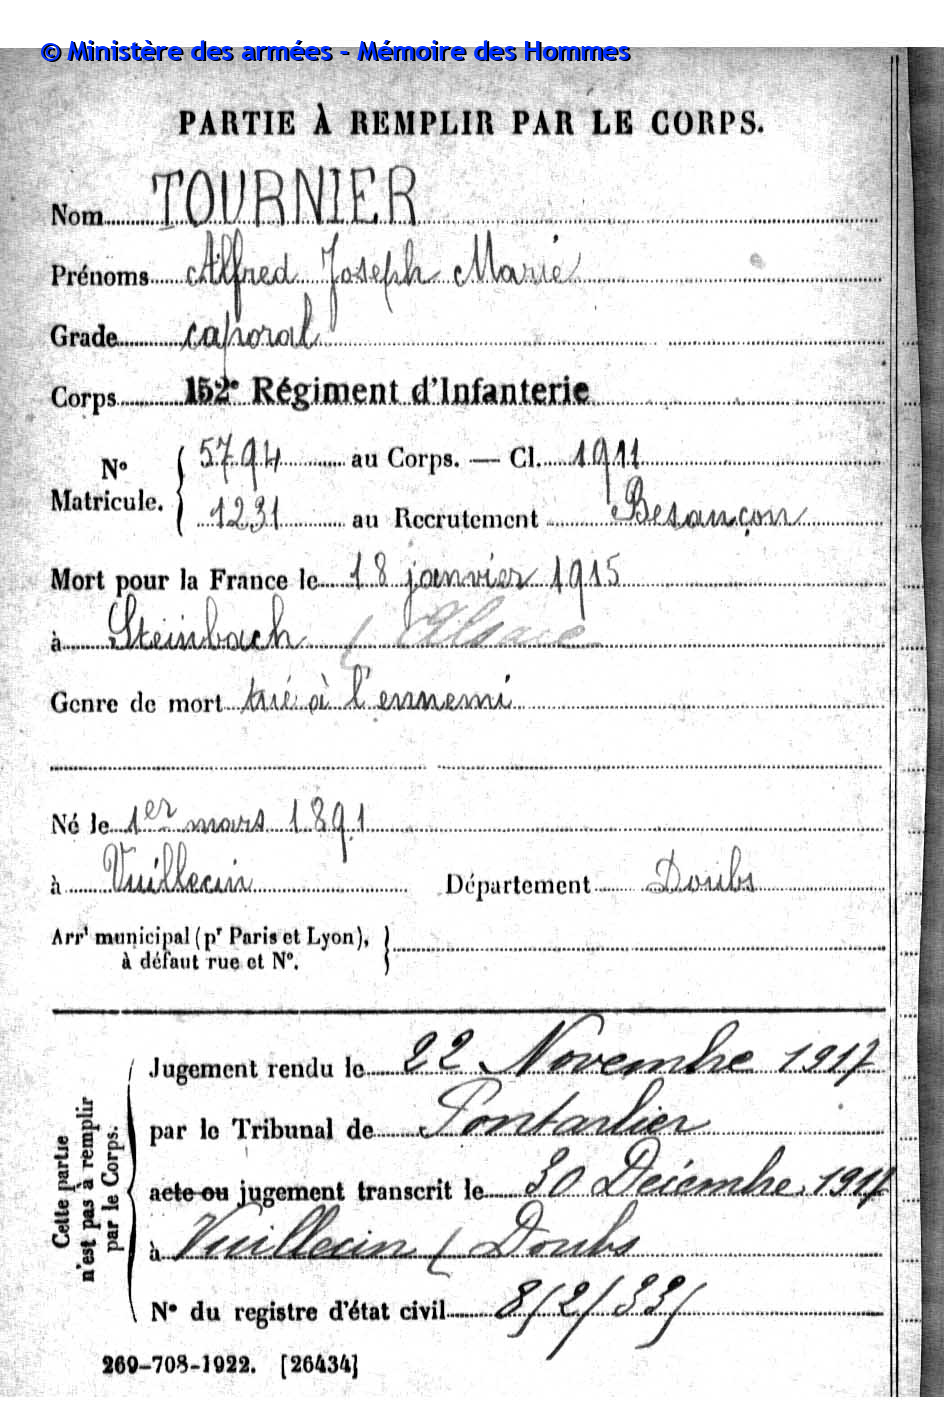 © Ministère des armées - Mémoire des Hommes
PARTIE À REMPLIR PAR LE CORPS.
Nom TOURNIER
Prénoms Alfred Joseph Marie
Grade caporal
Corps 152e Régiment d'Infanterie
No Matricule. { 5794 au Corps. — Cl. 1911
1231 au Recrutement Besançon
Mort pour la France le 18 janvier 1915
à Steinbach (Alsace
Genre de mort tué à l'ennemi
Né le 1er mars 1891
à Vuillecin Département Doubs
Arrt municipal (pr Paris et Lyon), }
à défaut rue et No.
Cette partie n'est pas à remplir par le Corps.
Jugement rendu le 22 Novembre 1917
par le Tribunal de Pontarlier
acte ou jugement transcrit le 30 Décembre 1917
à Vuillecin (Doubs
No du registre d'état civil 8/2/33/
269-708-1922. [26434]